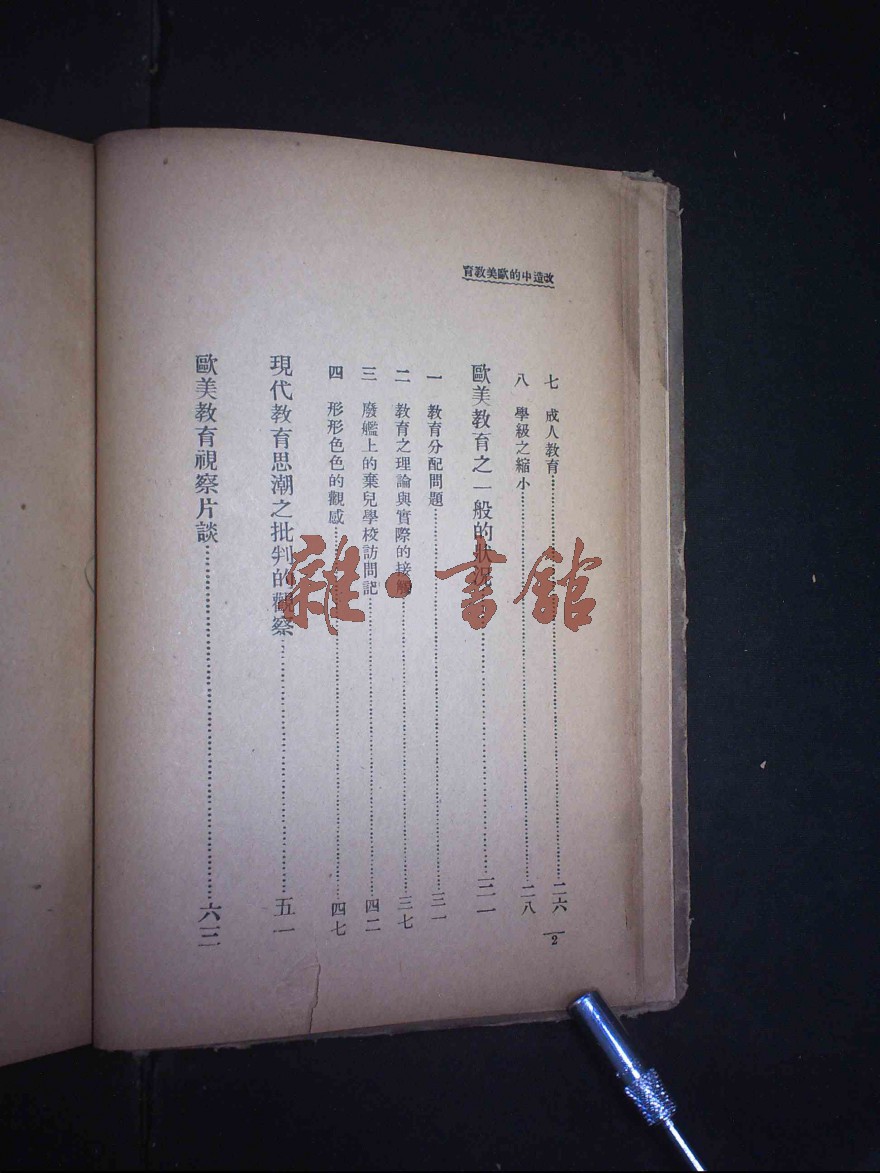 改造中的歐美教育
七　成人教育……二六
八　學級之縮小……二八
歐美教育之一般的狀况……三一
一　教育分配問題……三一
二　教育之理論與實際的接觸……三七
三　廢艦上的棄兒學校訪問記……四二
四　形形色色的觀感……四七
現代教育思潮之批判的觀察……五一
歐美教育視察片談……六三
2
雜·書館